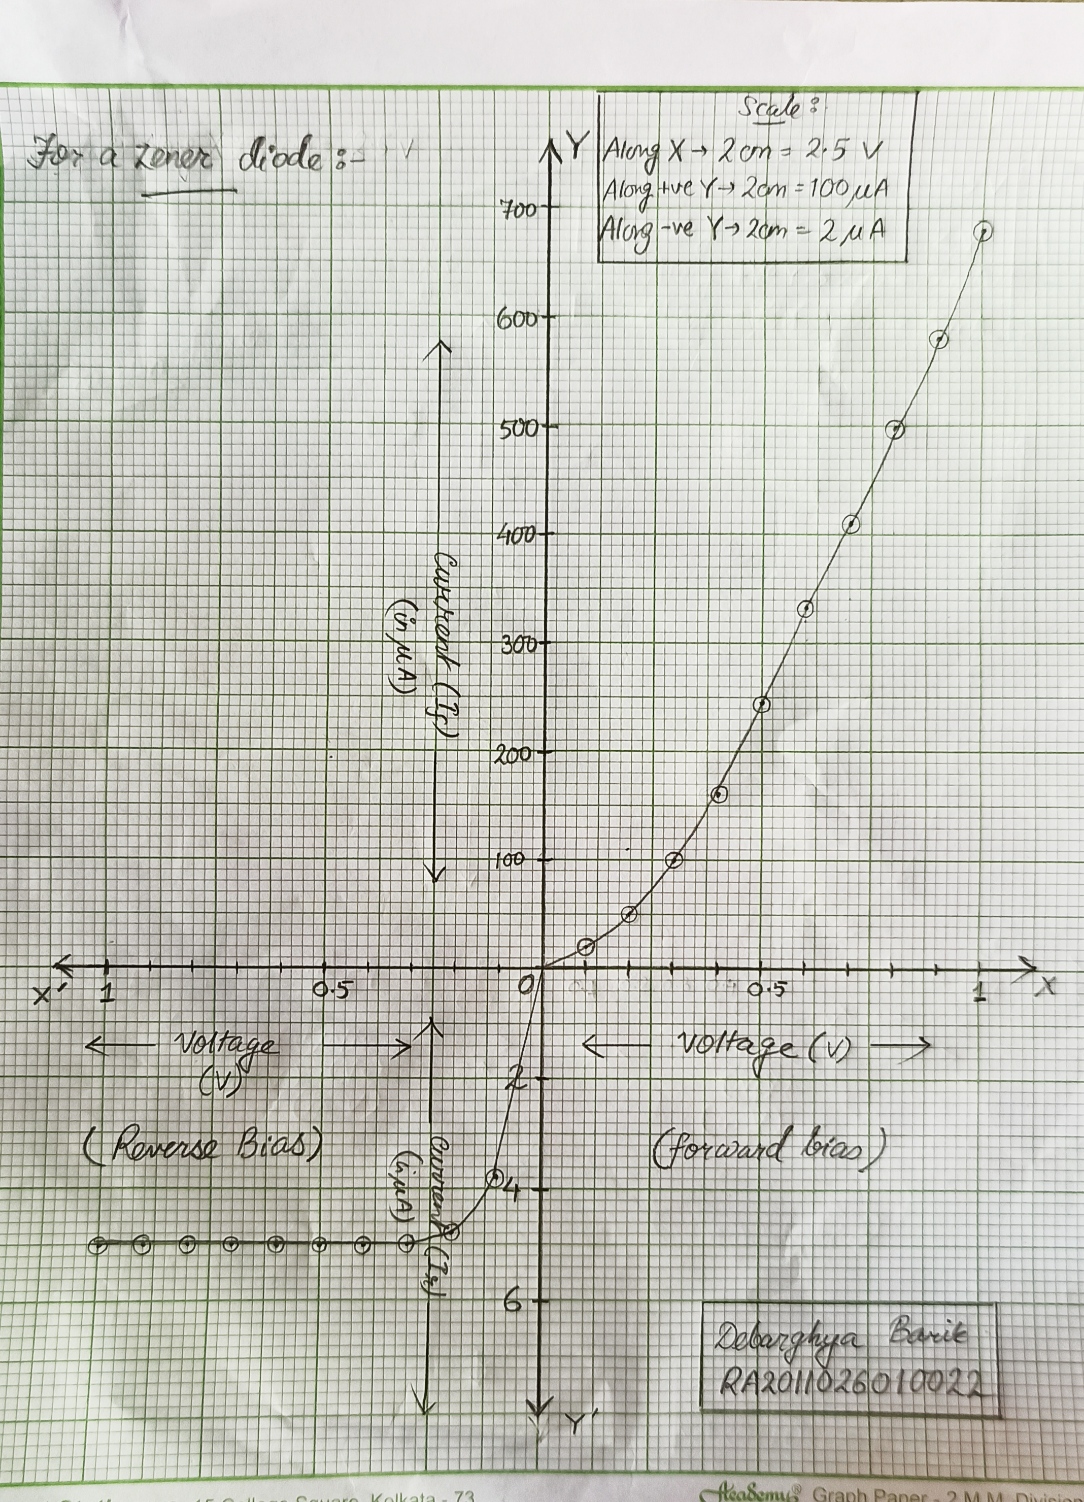 For a zener diode :-
Scale :
Along X → 2 cm = 2.5 V
Along +ve Y → 2cm = 100 μA
Along -ve Y → 2cm = 2 μA
Y
700
600
500
400
300
200
100
Current (If)
(in μA)
X'
1
0.5
0
0.5
1
X
Voltage
(V)
Voltage (V)
2
(Reverse Bias)
(forward bias)
Current (Ir)
(in μA)
4
6
Y'
Debarghya Barik
RA2011026010022
College Square, Kolkata - 73
Academy® Graph Paper - 2 M.M.